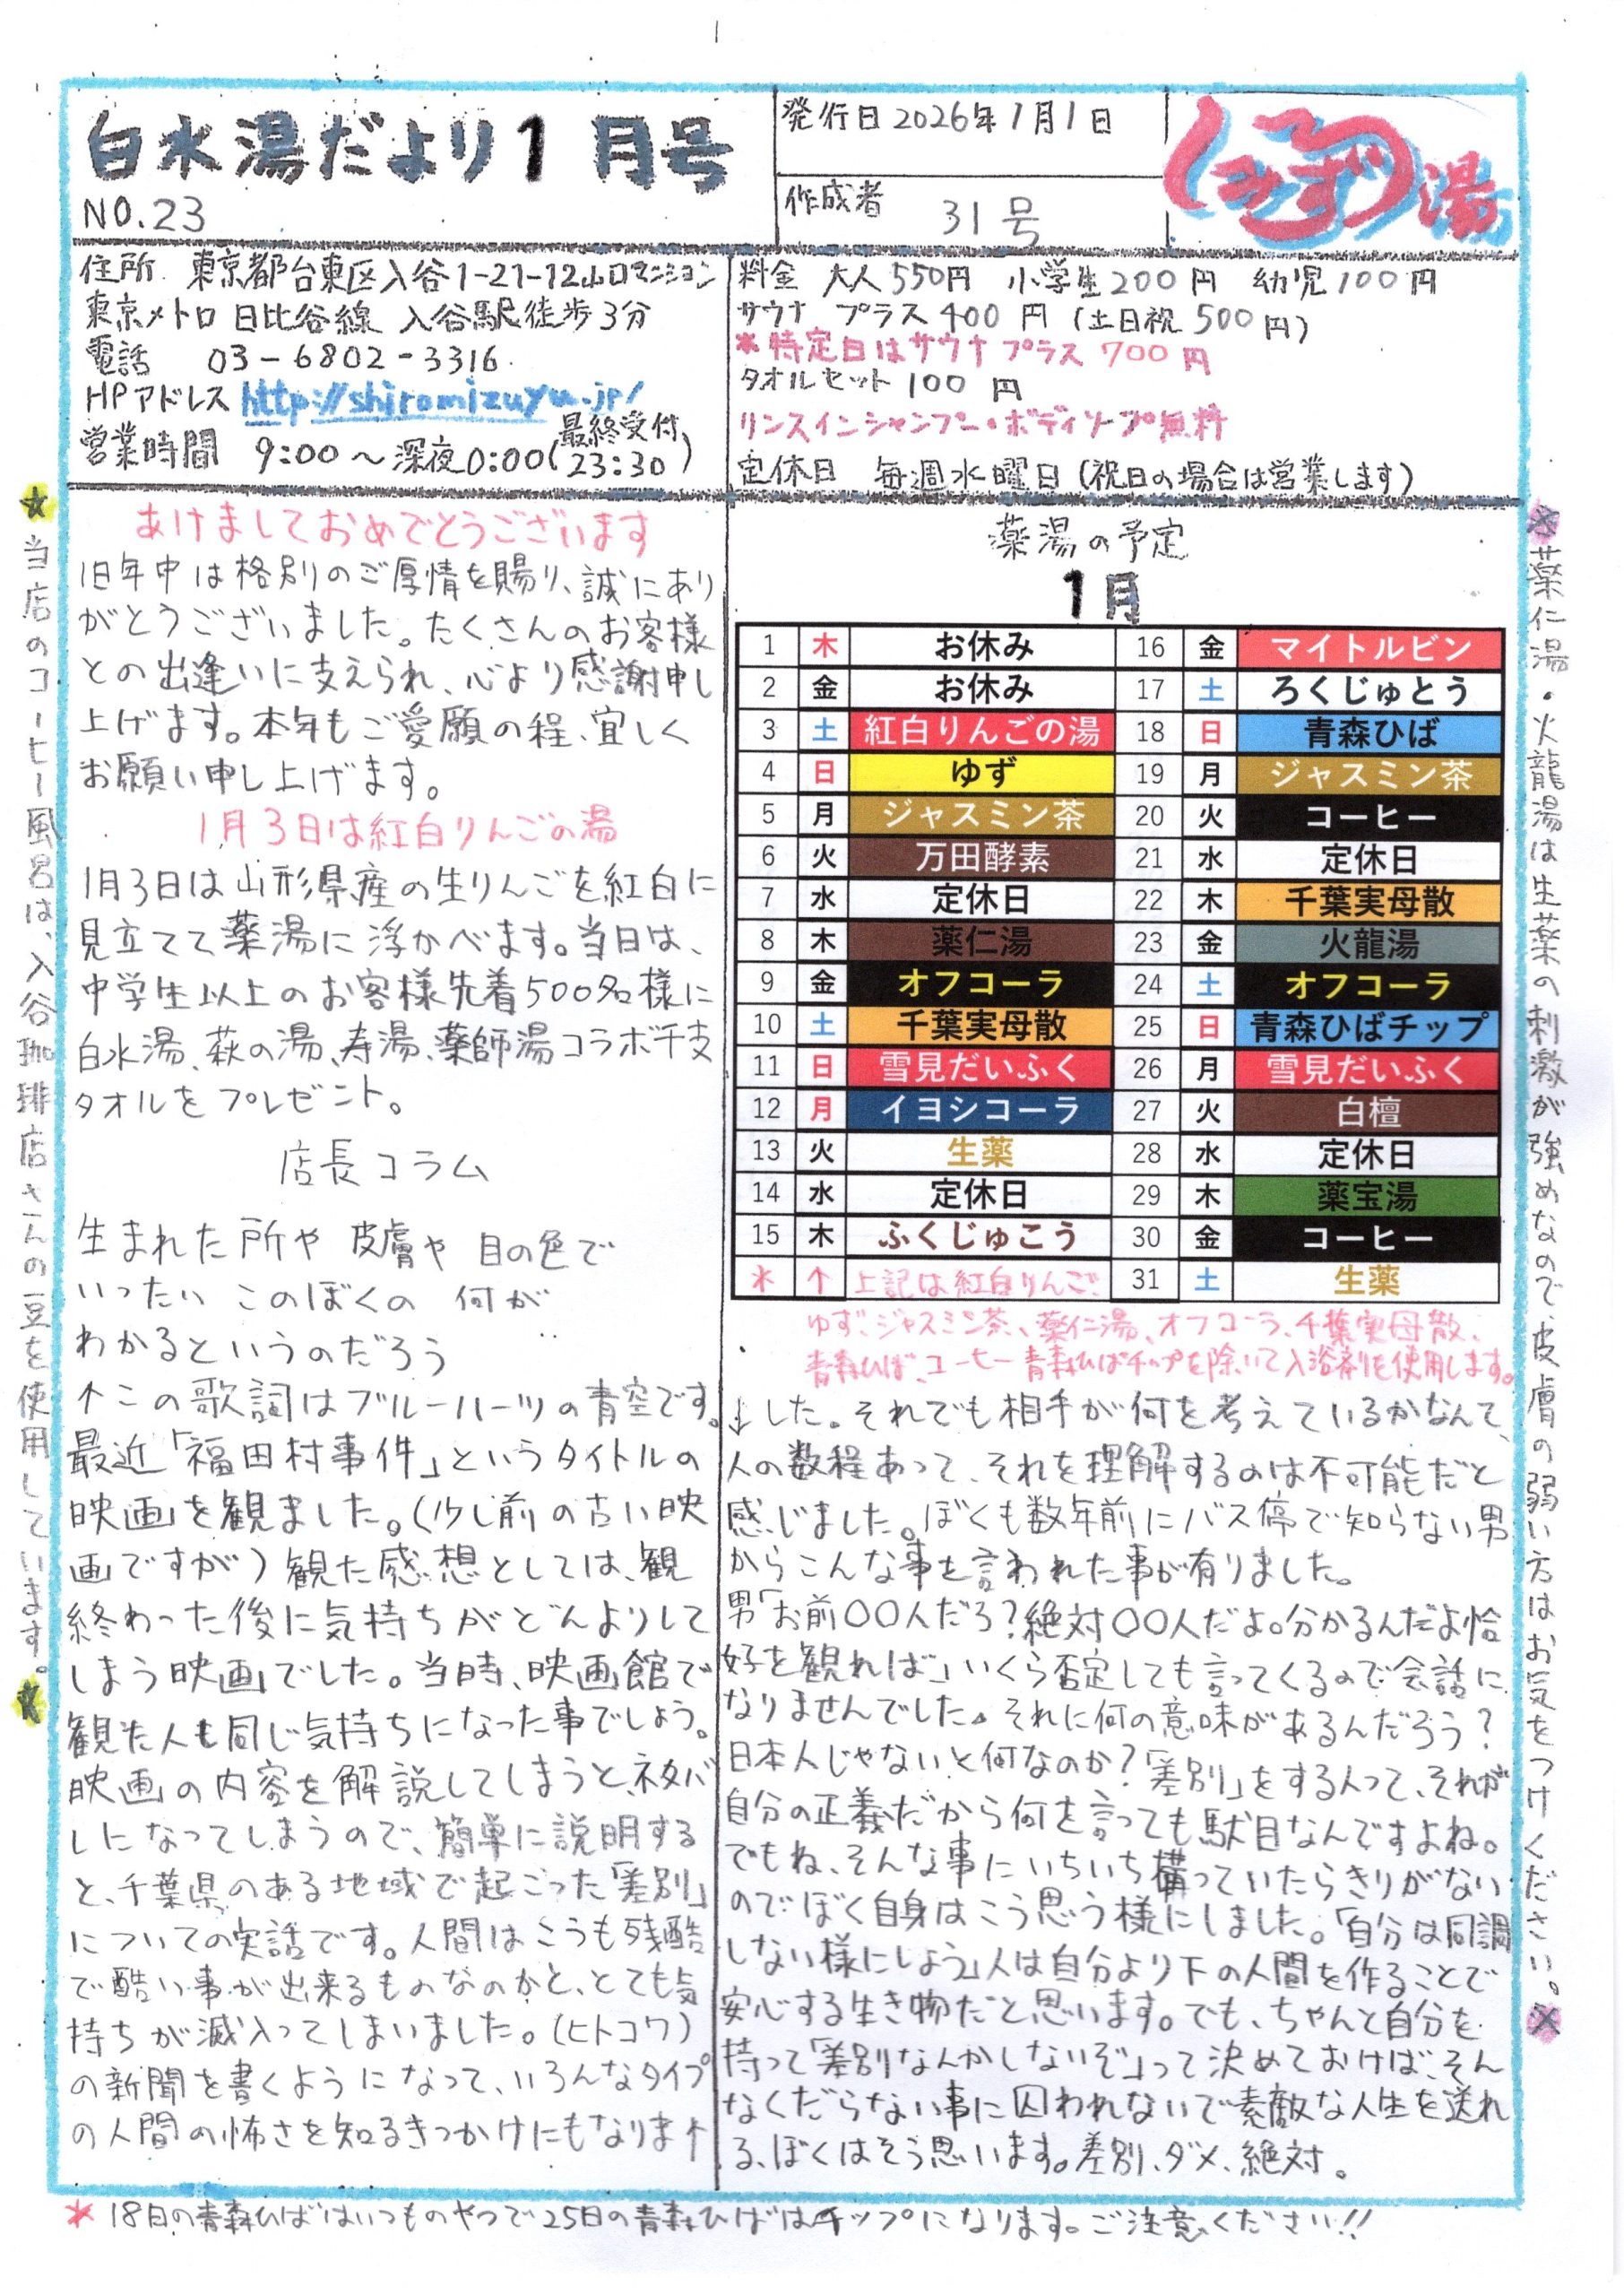 白水湯だより1月号
NO.23
発行日 2026年1月1日
作成者 31号
しろみず湯
住所 東京都台東区入谷1-21-12山口マンション
東京メトロ 日比谷線 入谷駅徒歩3分
電話 03-6802-3316
HPアドレス http://shiromizuyu.jp/
営業時間 9:00〜深夜0:00(最終受付23:30)
料金 大人550円 小学生200円 幼児100円
サウナ プラス400円(土日祝500円)
*特定日はサウナプラス700円
タオルセット100円
リンスインシャンプー・ボディソープ無料
定休日 毎週水曜日(祝日の場合は営業します)
★当店のコーヒー風呂は、入谷珈琲店さんの豆を使用しています。★
あけましておめでとうございます
旧年中は格別のご厚情を賜り、誠にあり
がとうございました。たくさんのお客様
との出逢いに支えられ、心より感謝申し
上げます。本年もご愛願の程、宜しく
お願い申し上げます。
1月3日は紅白りんごの湯
1月3日は山形県産の生りんごを紅白に
見立てて薬湯に浮かべます。当日は、
中学生以上のお客様先着500名様に
白水湯、萩の湯、寿湯、薬師湯コラボ干支
タオルをプレゼント。
店長コラム
生まれた所や 皮膚や 目の色で
いったい このぼくの 何が
わかるというのだろう
↑この歌詞はブルーハーツの青空です。
最近「福田村事件」というタイトルの
映画を観ました。(少し前の古い映
画ですが)観た感想としては、観
終わった後に気持ちがどんよりして
しまう映画でした。当時、映画館で
観た人も同じ気持ちになった事でしょう。
映画の内容を解説してしまうと、ネタバ
レになってしまうので、簡単に説明する
と、千葉県のある地域で起こった「差別」
についての実話です。人間はこうも残酷
で酷い事が出来るものなのかと、とても気
持ちが滅入ってしまいました。(ヒトコワ)
の新聞を書くようになって、いろんなタイプ
の人間の怖さを知るきっかけにもなりま↑
薬湯の予定
1月
1 木 お休み 16 金 マイトルビン
2 金 お休み 17 土 ろくじゅとう
3 土 紅白りんごの湯 18 日 青森ひば
4 日 ゆず 19 月 ジャスミン茶
5 月 ジャスミン茶 20 火 コーヒー
6 火 万田酵素 21 水 定休日
7 水 定休日 22 木 千葉実母散
8 木 薬仁湯 23 金 火龍湯
9 金 オフコーラ 24 土 オフコーラ
10 土 千葉実母散 25 日 青森ひばチップ
11 日 雪見だいふく 26 月 雪見だいふく
12 月 イヨシコーラ 27 火 白檀
13 火 生薬 28 水 定休日
14 水 定休日 29 木 薬宝湯
15 木 ふくじゅこう 30 金 コーヒー
* ↑ 上記は紅白りんご、 31 土 生薬
ゆず、ジャスミン茶、薬仁湯、オフコーラ、千葉実母散、
青森ひば、コーヒー青森ひばチップを除いて入浴剤を使用します。
↓した。それでも相手が何を考えているかなんて、
人の数程あって、それを理解するのは不可能だと
感じました。ぼくも数年前にバス停で知らない男
からこんな事を言われた事が有りました。
男「お前〇〇人だろ?絶対〇〇人だよ。分かるんだよ恰
好を観れば」いくら否定しても言ってくるので会話に
なりませんでした。それに何の意味があるんだろう?
日本人じゃないと何なのか?「差別」をする人って、それが
自分の正義だから何を言っても駄目なんですよね。
でもね、そんな事にいちいち構っていたらきりがない
のでぼく自身はこう思う様にしました。「自分は同調
しない様にしよう」人は自分より下の人間を作ることで
安心する生き物だと思います。でも、ちゃんと自分を
持って「差別なんかしないぞ」って決めておけば、そん
なくだらない事に囚われないで素敵な人生を送れ
る、ぼくはそう思います。差別、ダメ、絶対。
※薬仁湯・火龍湯は生薬の刺激が強めなので、皮膚の弱い方はお気をつけください。※
*18日の青森ひばはいつものやつで25日の青森ひばはチップになります。ご注意ください!!